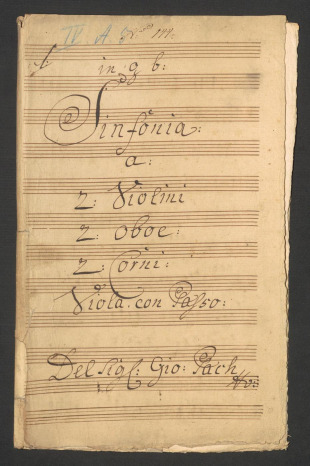 IV. A
in g b:
Sinfonia:
a:
2: Violini
2: Oboe:
2: Corni:
Viola. con Basso:
Del Sigl: Gio: Bach